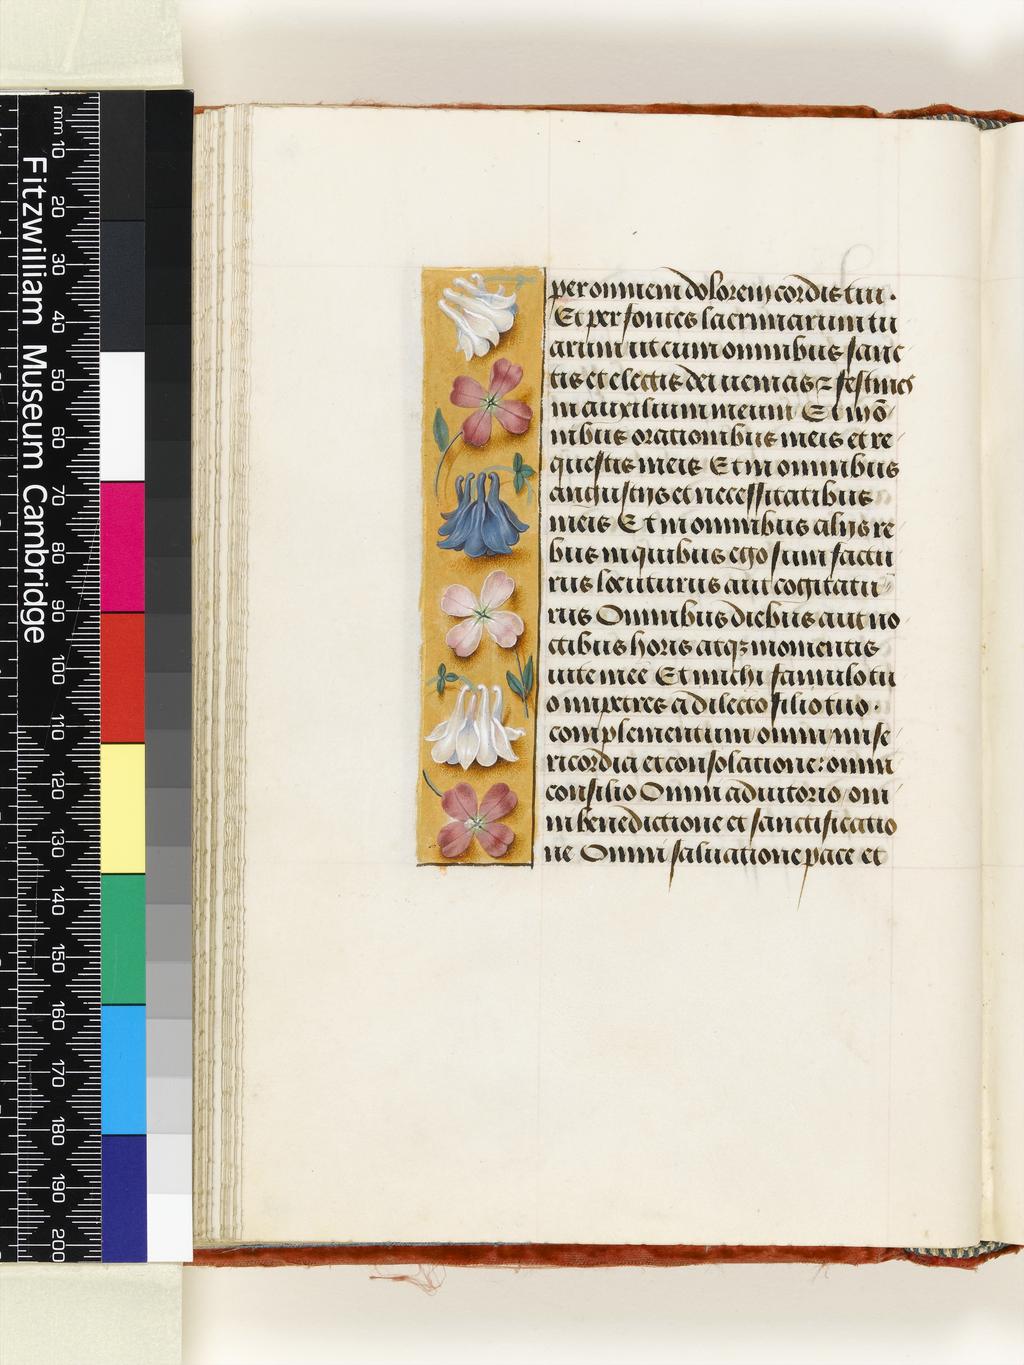 Fitzwilliam Museum Cambridge
mm 10 20 30 40 50 60 70 80 90 100 110 120 130 140 150 160 170 180 190 200
per omnem dolorem cordis tui.
Et per fontes lacrimarum tu
arum ut cum omnibus sanc
tis et electis dei uenias ⁊ festines
in auxilium meum Et in õ
nibus orationibus meis et re
questis meis Et in omnibus
angustijs et necessitatibus
meis Et in omnibus alijs re
bus in quibus ego sum factu
rus locuturus aut cogitatu
rus Omnibus diebus aut no
ctibus horis atqꝫ momentis
uite mee Et michi famulo tu
o impetres a dilecto filio tuo.
complementum omni mise
ricordia et consolatione: omni
consilio Omni adiutorio om
ni benedictione et sanctificatio
ne Omni saluatione pace et